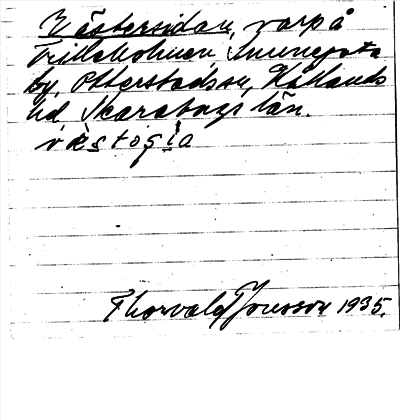 Västersidan, varp å
Trilleholmen, Sunnegata
by, Otterstads sn, Kållands
hd Skaraborgs län.
västögla
Thorvald Jonsson 1935.